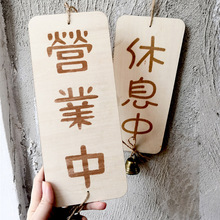 營業中
休息中